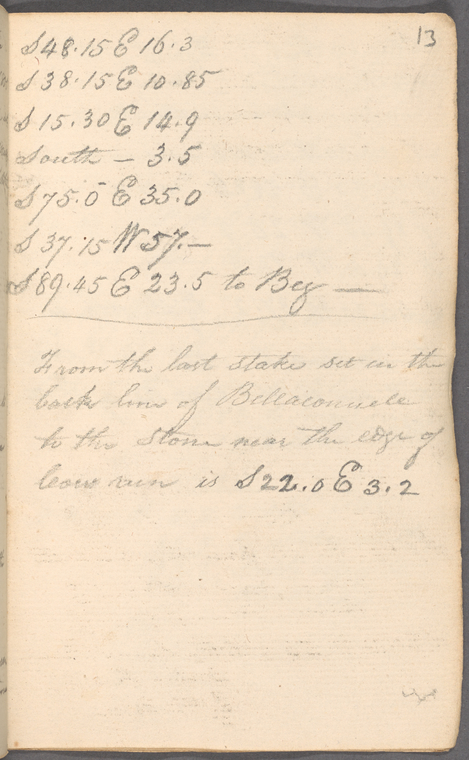 13
S 48.15 E 16.3
S 38.15 E 10.85
S 15.30 E 14.9
South — 3.5
S 75.0 E 35.0
S 37.15 W 57.—
S 89.45 E 23.5 to Beg —
From the last stake set in the
back line of
to the Stone near the edge of
run is S 22.0 E 3.2